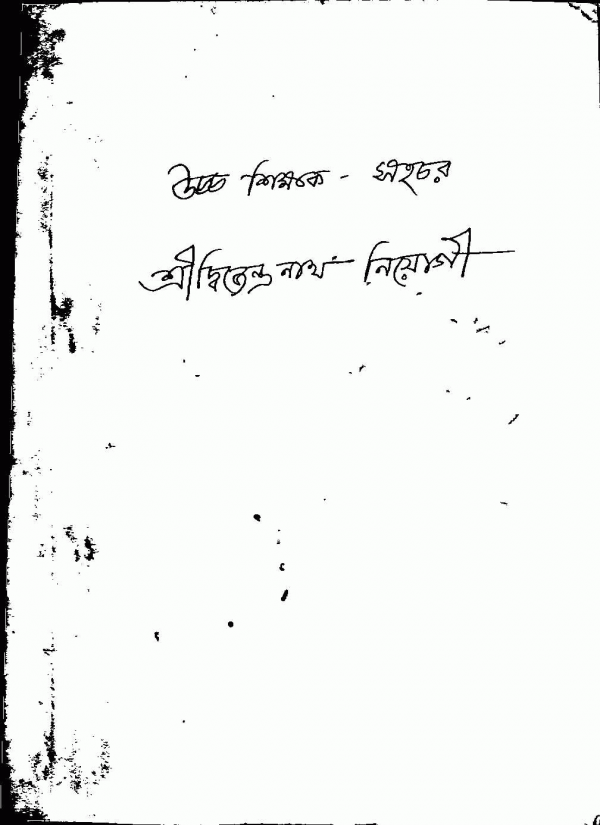 উচ্চ শিক্ষক - সহচর
শ্রীদ্বিজেন্দ্রনাথ নিয়োগী